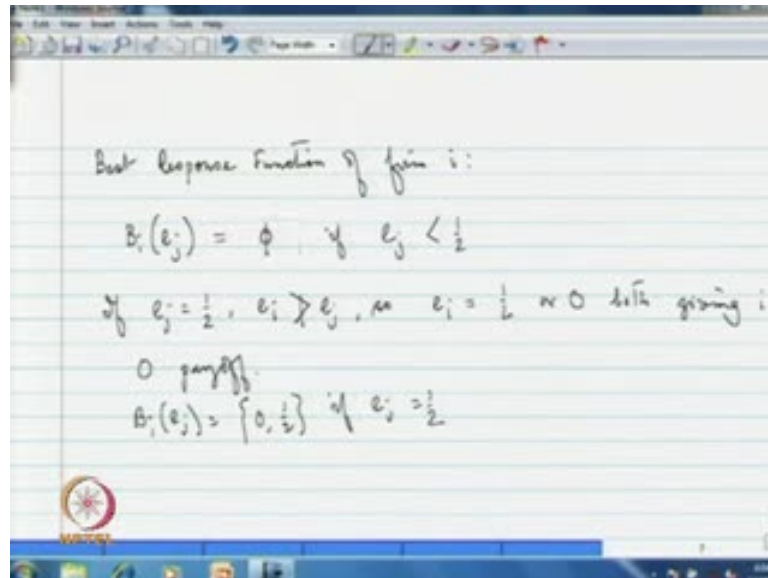 File Edit View Insert Actions Tools Help
Page Width
Best Response Function of firm i:
Bi(ej) = ϕ if ej < 1/2
If ej = 1/2, ei ≯ ej, so ei = 1/2 or 0 both giving i
0 payoff.
Bi(ej) = {0, 1/2} if ej = 1/2
NPTEL